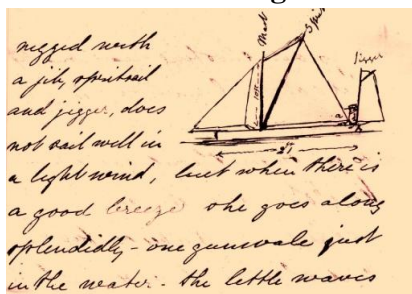 rigged with
a jib, spritsail
and jigger, does
not sail well in
a light wind, but when there is
a good breeze she goes along
splendidly - one gunwale just
in the water. The little waves
Mast
Sprit
Jigger